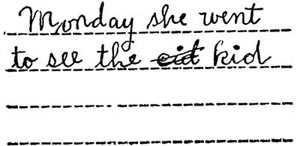 Monday she went
to see the cid kid